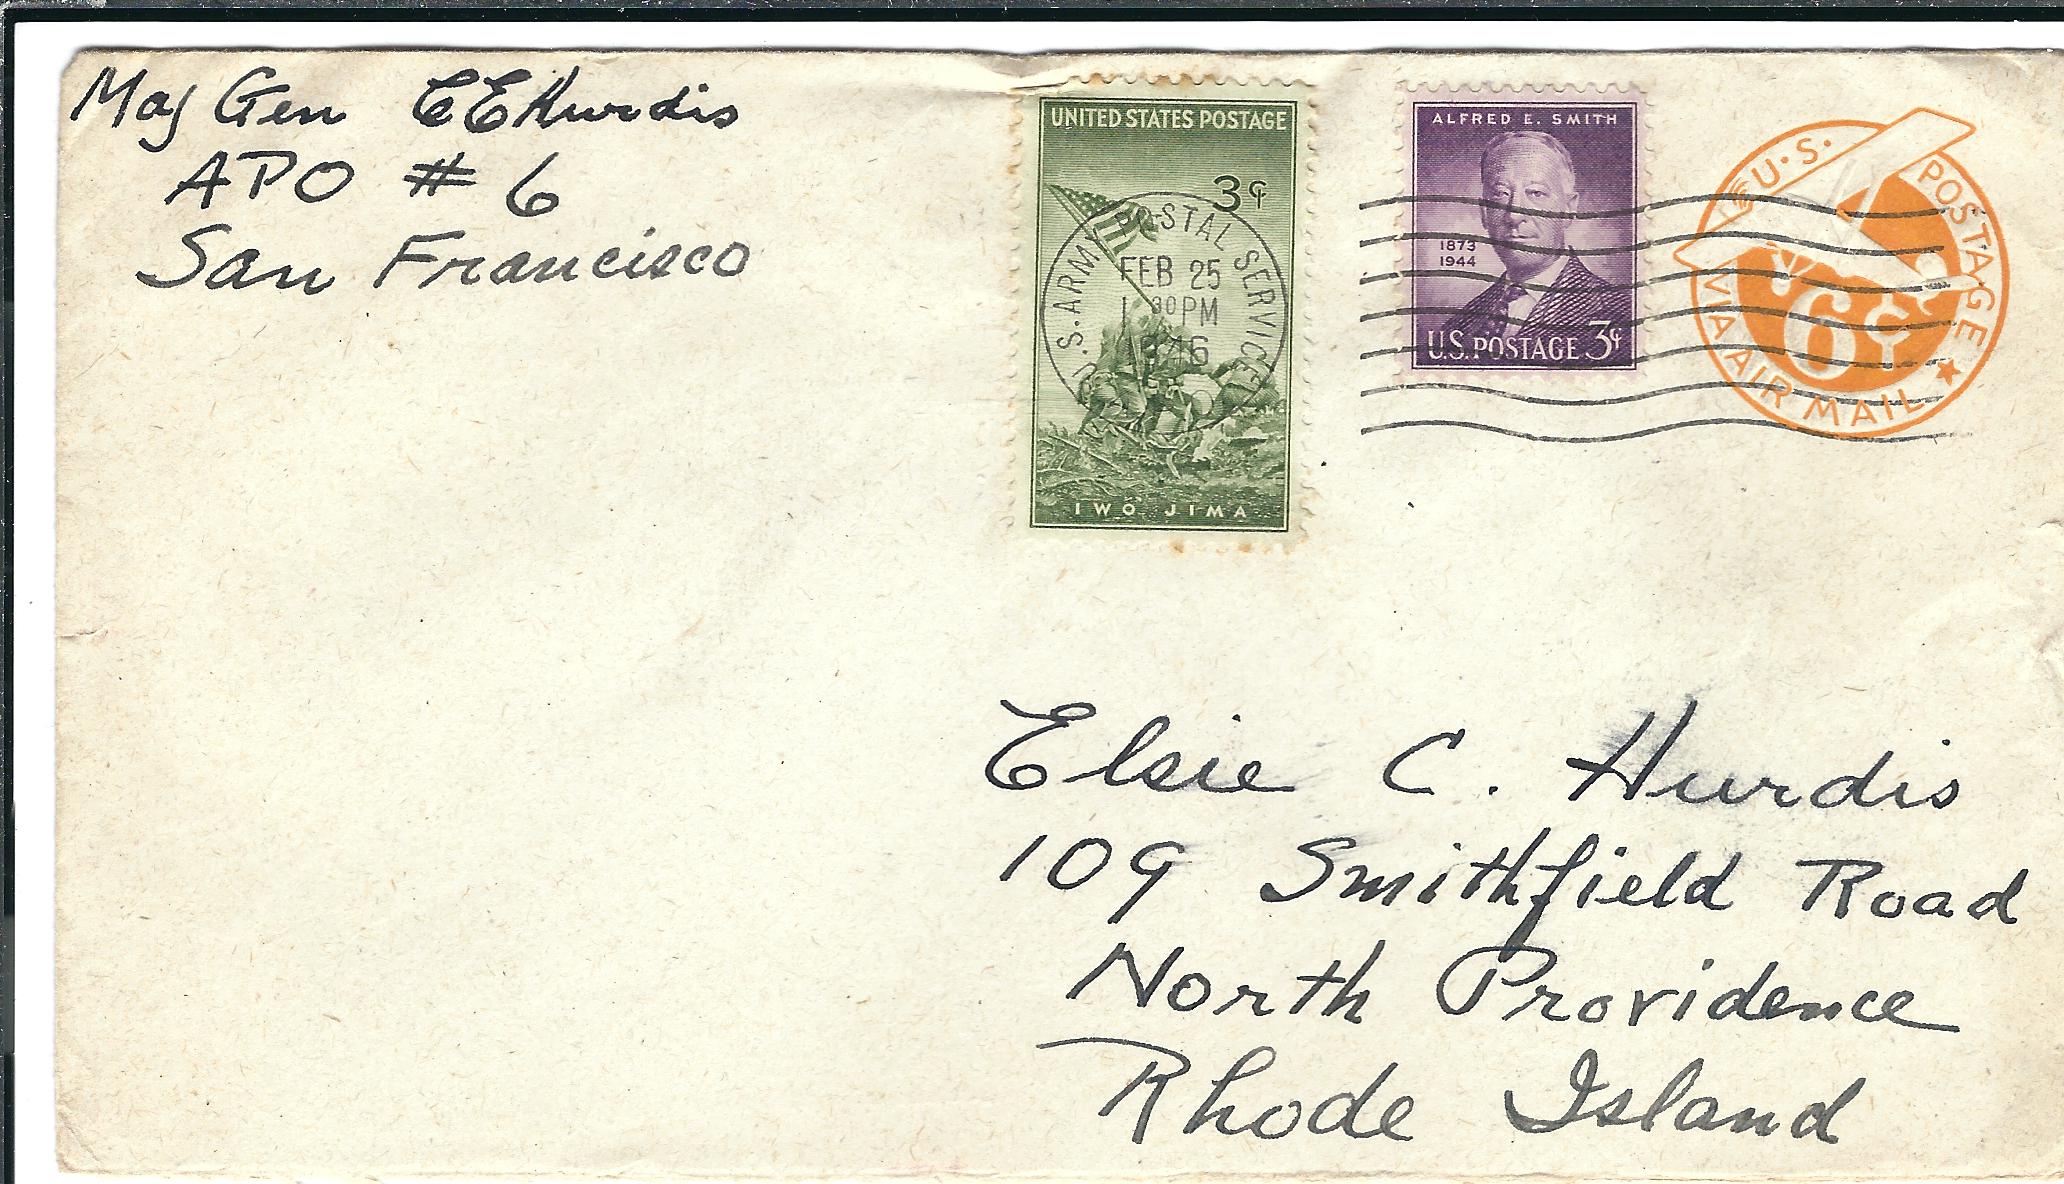 Maj Gen C E Hurdis
APO # 6
San Francisco
UNITED STATES POSTAGE
3¢
IWO JIMA
U.S. ARMY POSTAL SERVICE
FEB 25
1 30 PM
1946
ALFRED E. SMITH
1873
1944
U.S. POSTAGE 3¢
U.S. POSTAGE
6¢
VIA AIR MAIL
Elsie C. Hurdis
109 Smithfield Road
North Providence
Rhode Island